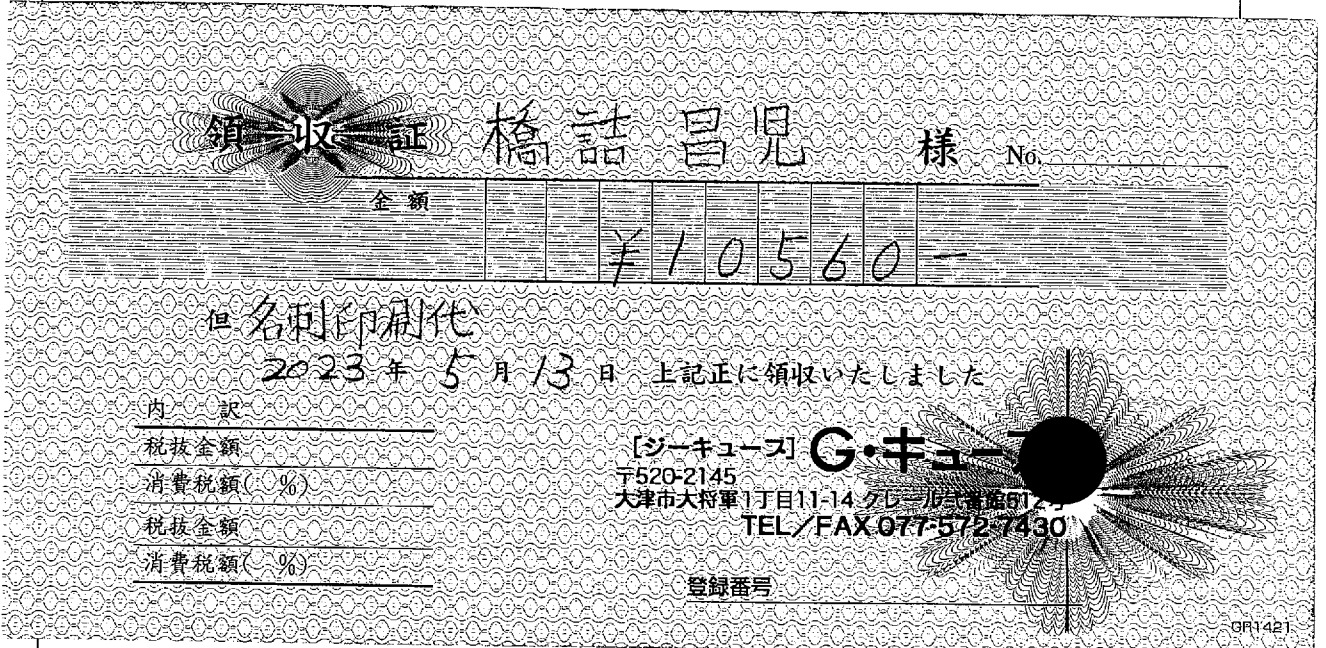 領収証 橋詰昌児 様 No.
金額 ¥10560-
但 名刺印刷代
2023年5月13日 上記正に領収いたしました
内 訳
税抜金額
消費税額( %)
税抜金額
消費税額( %)
[ジーキューブ] G・キュー
〒520-2145
大津市大将軍1丁目11-14 クレール弐番館512号
TEL/FAX 077-572-7430
登録番号
GR1421